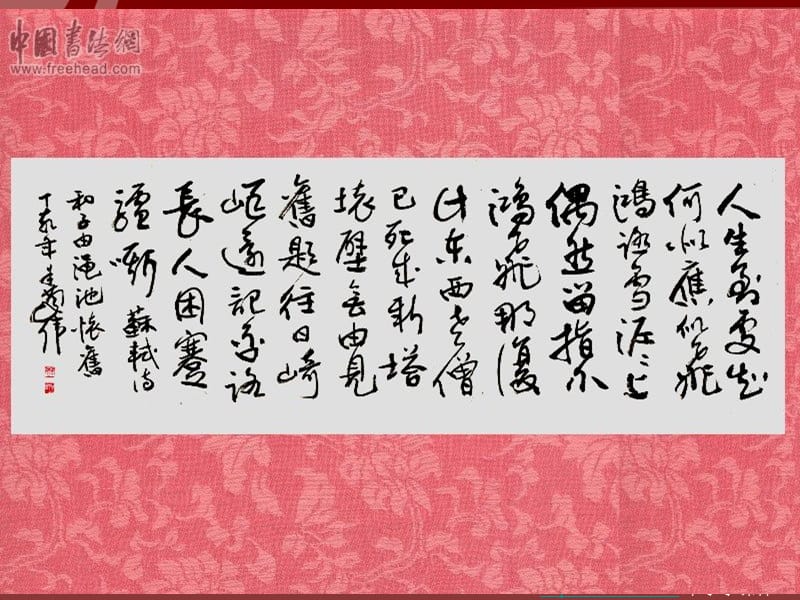 中國書法網
www.freehead.com
人生到處知
何似應似飛
鴻踏雪泥々上
偶然留指爪
鴻飛那復
計东西老僧
已死成新塔
壞壁無由見
舊題往日崎
嶇還記否路
長人困蹇
驢嘶 蘇軾詩
和子由澠池懷舊
丁亥年